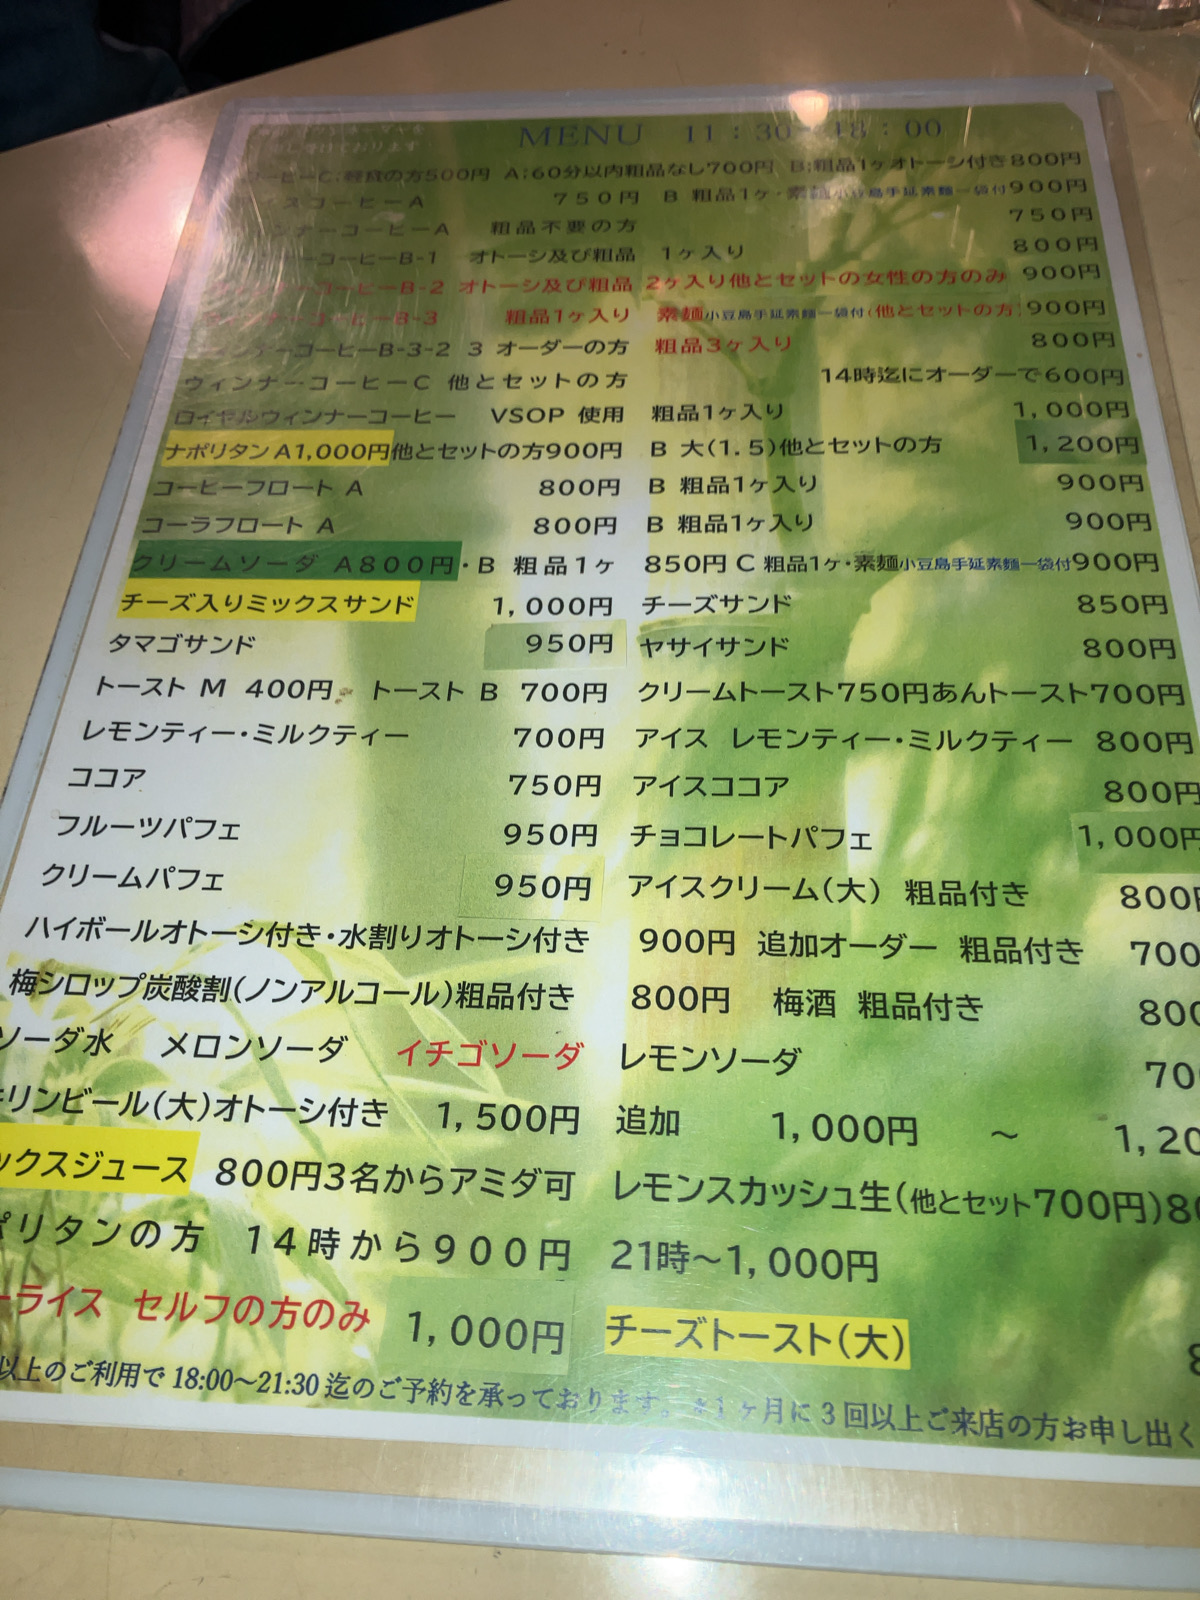 申し受けております
MENU 11:30~18:00
コーヒーC:軽食の方500円 A:60分以内粗品なし700円 B:粗品1ヶオトーシ付き800円
アイスコーヒーA 750円 B 粗品1ヶ・素麺小豆島手延素麺一袋付900円
ンナーコーヒーA 粗品不要の方 750円
ーコーヒーB-1 オトーシ及び粗品 1ヶ入り 800円
ーコーヒーB-2 オトーシ及び粗品 2ヶ入り他とセットの女性の方のみ 900円
ウィンナーコーヒーB-3 粗品1ヶ入り 素麺小豆島手延素麺一袋付(他とセットの方) 900円
ンナーコーヒーB-3-2 3 オーダーの方 粗品3ヶ入り 800円
ウィンナーコーヒーC 他とセットの方 14時迄にオーダーで600円
ロイヤルウィンナーコーヒー VSOP 使用 粗品1ヶ入り 1,000円
ナポリタン A1,000円他とセットの方900円 B 大(1.5)他とセットの方 1,200円
コーヒーフロート A 800円 B 粗品1ヶ入り 900円
コーラフロート A 800円 B 粗品1ヶ入り 900円
クリームソーダ A800円・B 粗品1ヶ 850円 C 粗品1ヶ・素麺小豆島手延素麺一袋付900円
チーズ入りミックスサンド 1,000円 チーズサンド 850円
タマゴサンド 950円 ヤサイサンド 800円
トースト M 400円 トースト B 700円 クリームトースト750円あんトースト700円
レモンティー・ミルクティー 700円 アイス レモンティー・ミルクティー 800円
ココア 750円 アイスココア 800円
フルーツパフェ 950円 チョコレートパフェ 1,000円
クリームパフェ 950円 アイスクリーム(大) 粗品付き 800円
ハイボールオトーシ付き・水割りオトーシ付き 900円 追加オーダー 粗品付き 700
梅シロップ炭酸割(ノンアルコール)粗品付き 800円 梅酒 粗品付き 800
ソーダ水 メロンソーダ イチゴソーダ レモンソーダ 70
キリンビール(大)オトーシ付き 1,500円 追加 1,000円 ~ 1,20
ックスジュース 800円3名からアミダ可 レモンスカッシュ生(他とセット700円)80
ポリタンの方 14時から900円 21時~1,000円
ーライス セルフの方のみ 1,000円 チーズトースト(大) 8
以上のご利用で 18:00~21:30 迄のご予約を承っております。*1ヶ月に3回以上ご来店の方お申し出く